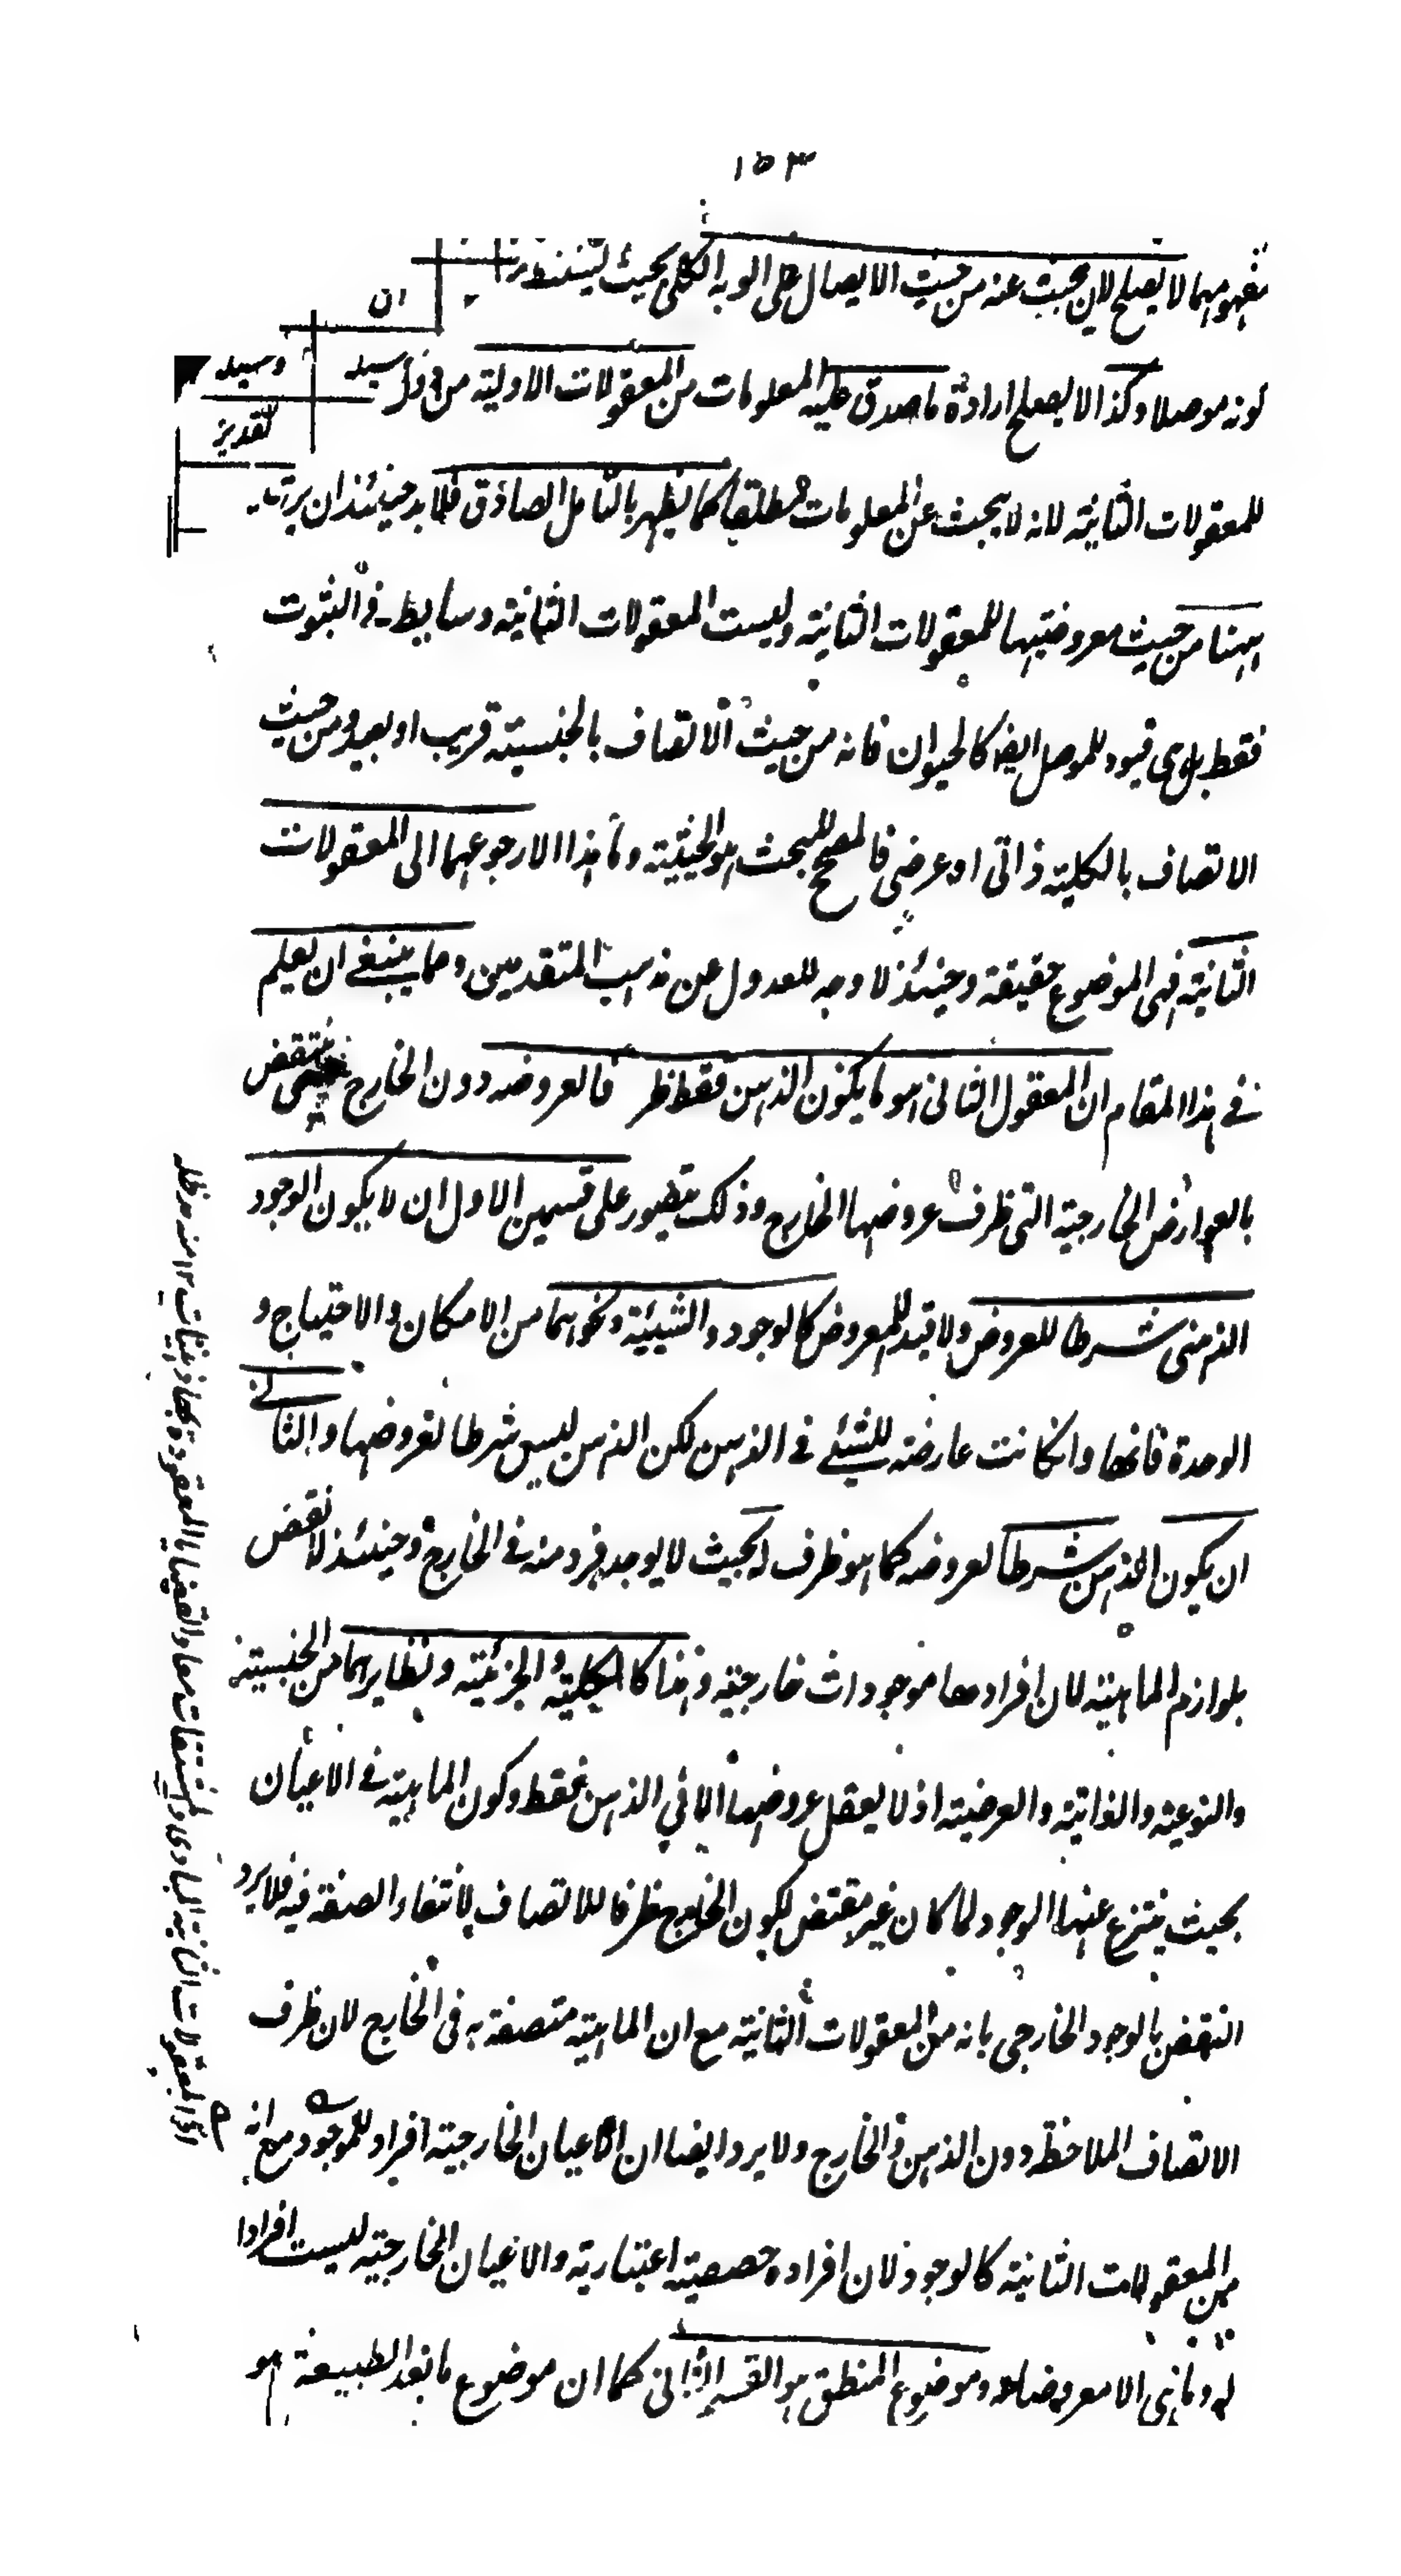 ١٥٣
مفهومهما لا يصلح لان يبحث عنه من حيث الايصال على الوجه الكلى بحيث
ان
كونه موصلا وكذا لا يصلح ارادة ما صدق عليه المعلومات من المعقولات الاولية من
وسيد
تقدير
للمعقولات الثانية لانه لا يبحث عن المعلومات مطلقا كما يظهر بالتامل الصادق فلا بد حينئذ ان يرتب
ههنا من حيث معروضيتها للمعقولات الثانية وليست المعقولات الثانية وسايط فى الثبوت
فقط بل هى قيود للموصل ايضا كالحيوان فانه من حيث الاتصاف بالجنسية قريب او بعيد ومن حيث
الاتصاف بالكلية ذاتى او عرضى فالمصحح للبحث هو الحيثية وما هذا الا رجوعهما الى المعقولات
الثانية فهى الموضوع حقيقة وحينئذ لا وجه للعدول عن مذهب المتقدمين ومما ينبغى ان يعلم
فى هذا المقام ان المعقول الثانى هو ما يكون الذهن فقط ظرفا لعروضه دون الخارج حتى ينتقض
بالعوارض الخارجية التى ظرف عروضها الخارج وذلك يتصور على قسمين الاول ان لا يكون الوجود
الذهنى شرطا للعروض ولا قيدا للمعروض كالوجود والشيئية ونحوهما من الامكان والاحتياج و
الوحدة فانها وان كانت عارضة للشيئ فى الذهن لكن الذهن ليس شرطا لعروضها والثانى
ان يكون الذهن شرطا لعروضه كما هو ظرف له بحيث لا يوجد فرد منه فى الخارج وحينئذ لا نقض
بلوازم الماهية لان افرادها موجودات خارجية وذهنا كالكلية والجزئية ونظايرهما من الجنسية
والنوعية والذاتية والعرضية اذ لا يعقل عروضها الا في الذهن فقط وكون الماهية فى الاعيان
بحيث ينتزع عنها الوجود لما كان غير مقتض لكون الخارج ظرفا للاتصاف لانتفاء الصفة فيه فلا يرد
النقض بالوجود الخارجى بانه من المعقولات الثانية مع ان الماهية متصفة به فى الخارج لان ظرف
الاتصاف الملاحظة دون الذهن والخارج ولا يرد ايضا ان الاعيان الخارجية افراد للموجود مع انه
من المعقولات الثانية كالوجود لان افراده حصصية اعتبارية والاعيان الخارجية ليست افرادا
له وما هى الا معروضاته وموضوع المنطق هو القسم الثانى كما ان موضوع ما بعد الطبيعة هو
المعقولات الثانية المبادى والمشتقات معا والقضايا المعقودة بها ذهنيات ١٢ منه مد ظله